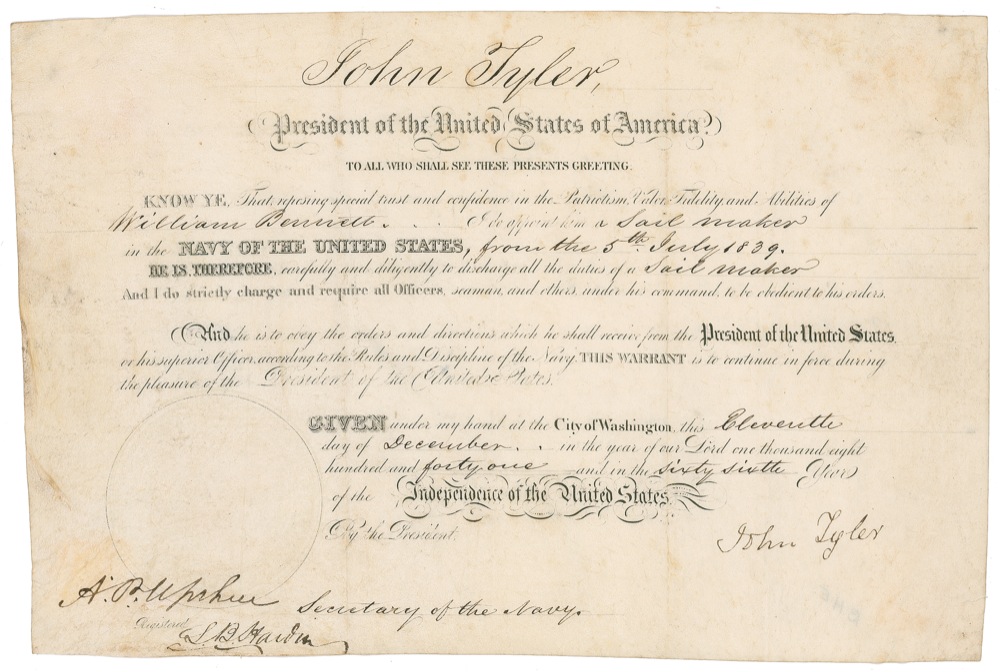 John Tyler,
President of the United States of America,
TO ALL WHO SHALL SEE THESE PRESENTS GREETING.
KNOW YE, That reposing special trust and confidence in the Patriotism, Valor, Fidelity, and Abilities of
William Bennett. . . I do appoint him a Sail maker
in the NAVY OF THE UNITED STATES, from the 5th July 1839.
HE IS, THEREFORE, carefully and diligently to discharge all the duties of a Sail maker
And I do strictly charge and require all Officers, seaman, and others, under his command, to be obedient to his orders.
And he is to obey the orders and directions which he shall receive from the President of the United States,
or his superior Officer, according to the Rules and Discipline of the Navy. THIS WARRANT is to continue in force during
the pleasure of the President of the United States.
GIVEN under my hand at the City of Washington, this Eleventh
day of December. . . in the year of our Lord one thousand eight
hundred and forty one and in the sixty sixth Year
of the Independence of the United States.
By the President.
John Tyler
A. P. Upshur Secretary of the Navy.
Registered